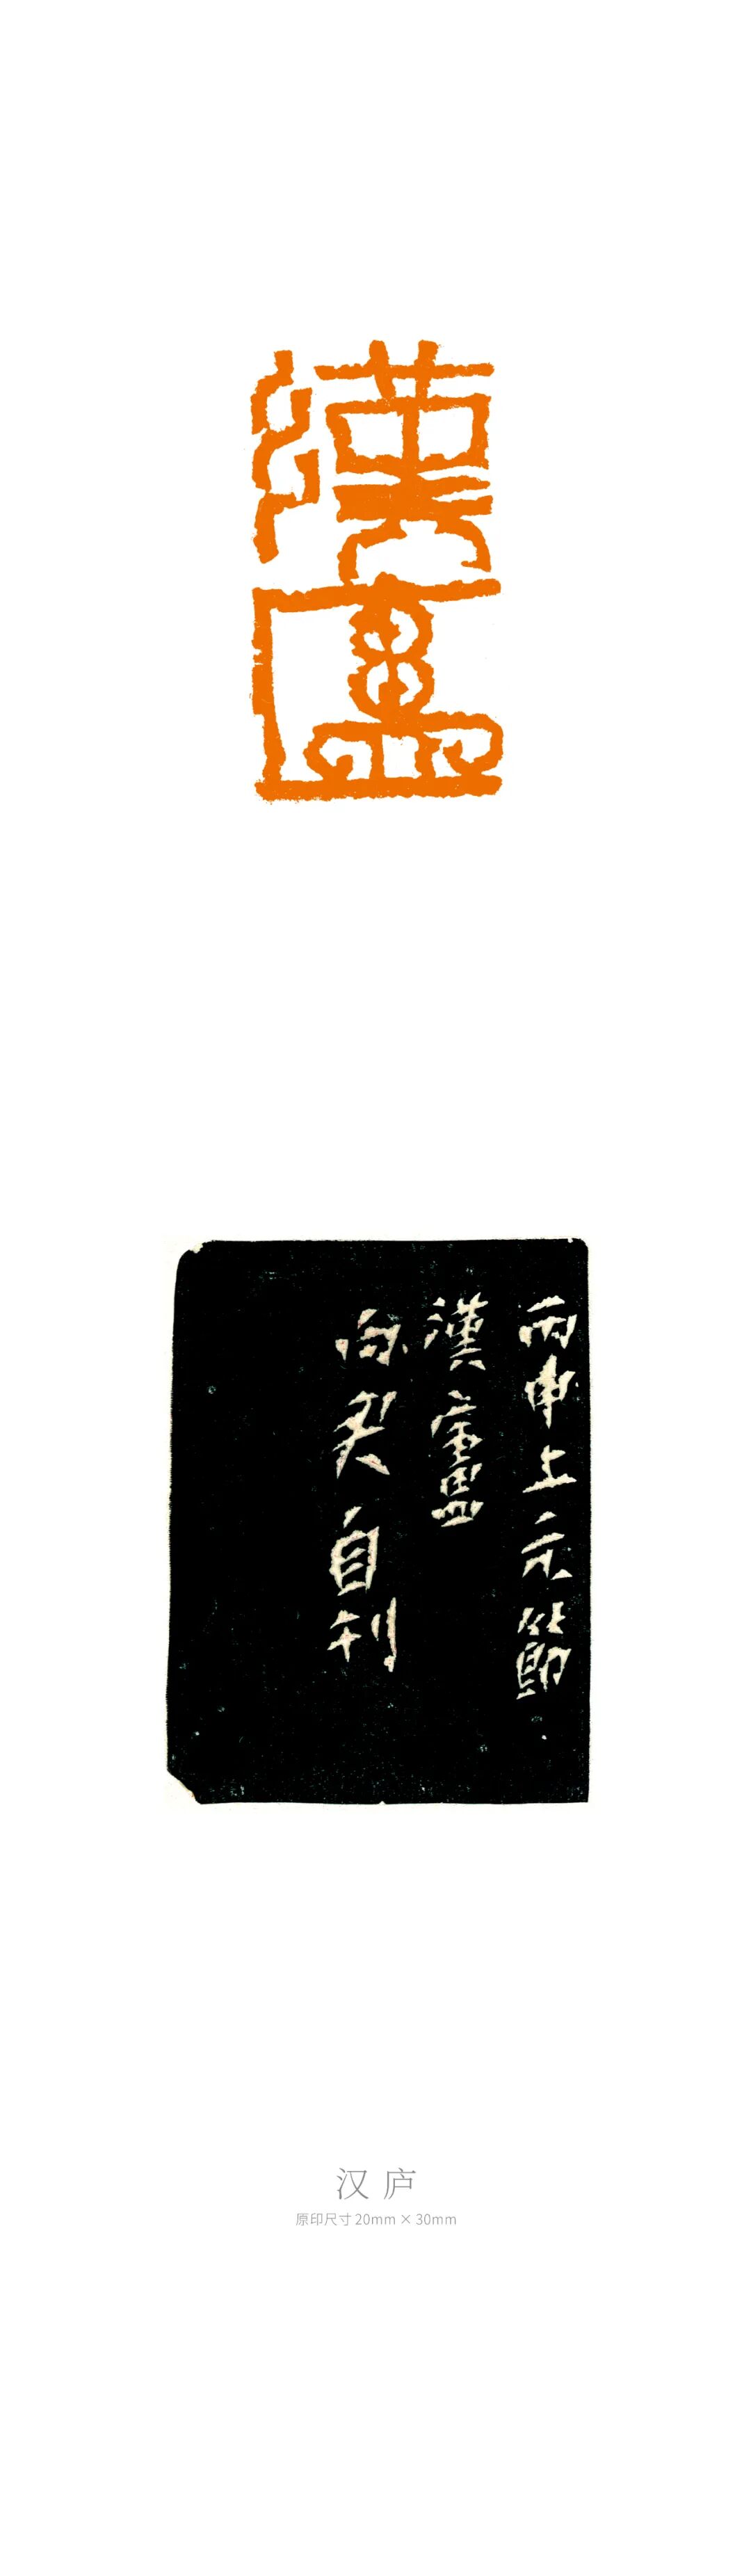 漢廬
丙申上元節
漢廬
向契自刊
汉庐
原印尺寸20mm × 30mm